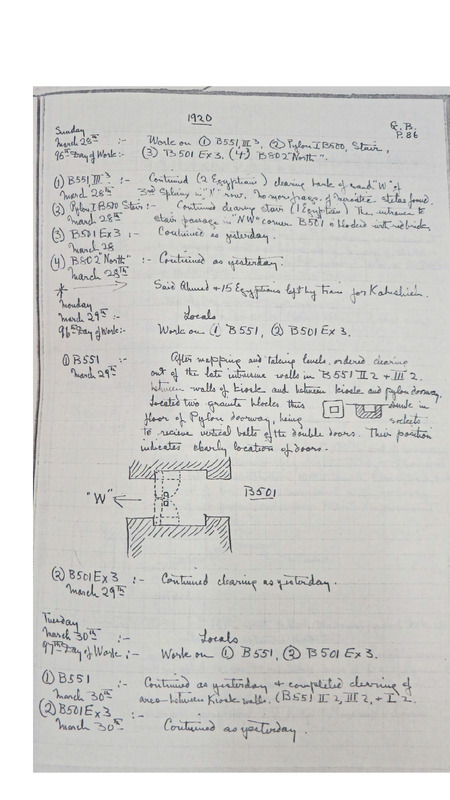 1920
G.B.
P.86
Sunday
March 28th :-
95th Day of Work :-
Work on (1) B551, III 3, (2) Pylon I B500, Stair,
(3) B501 Ex 3. (4) B802 "North".
(1) B551 III 3 :-
March 28th
Continued (2 Egyptians) clearing bank of sand "W" of
3rd Sphinx in "N" row. No more frags. of Meroitic stelae found.
(2) Pylon I B500 Stair :-
March 28th
Continued clearing stair (1 Egyptian) The entrance to
stair passage in "NW" corner B501 is blocked with red brick.
(3) B501 Ex 3 :-
March 28
Continued as yesterday.
(4) B802 "North" :-
March 28th
Continued as yesterday.
*
Said Ahmed + 15 Egyptians left by train for Kabushieh.
Monday
March 29th :-
96th Day of Work :-
Locals
Work on (1) B551, (2) B501 Ex 3.
(1) B551 :-
March 29th
After mapping and taking levels, ordered clearing
out of the late intrusive walls in B551 II 2 + III 2.
between walls of Kiosk and between kiosk and pylon doorway.
Located two granite blocks thus sunk in
floor of Pylon doorway, being sockets
to recieve vertical bolts of the double doors. Their position
indicates clearly location of doors.
"W"
B501
(2) B501 Ex 3 :-
March 29th
Continued clearing as yesterday.
Tuesday
March 30th :-
97th Day of Work :-
Locals
Work on (1) B551, (2) B501 Ex 3.
(1) B551 :-
March 30th
Continued as yesterday + completed clearing of
area between Kiosk walls. (B551 II 2, III 2, + I 2.
(2) B501 Ex 3 :-
March 30th
Continued as yesterday.